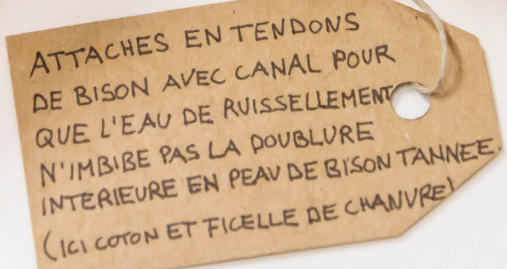 ATTACHES EN TENDONS
DE BISON AVEC CANAL POUR
QUE L'EAU DE RUISSELLEMENT
N'IMBIBE PAS LA DOUBLURE
INTERIEURE EN PEAU DE BISON TANNEE.
(ICI COTON ET FICELLE DE CHANVRE)